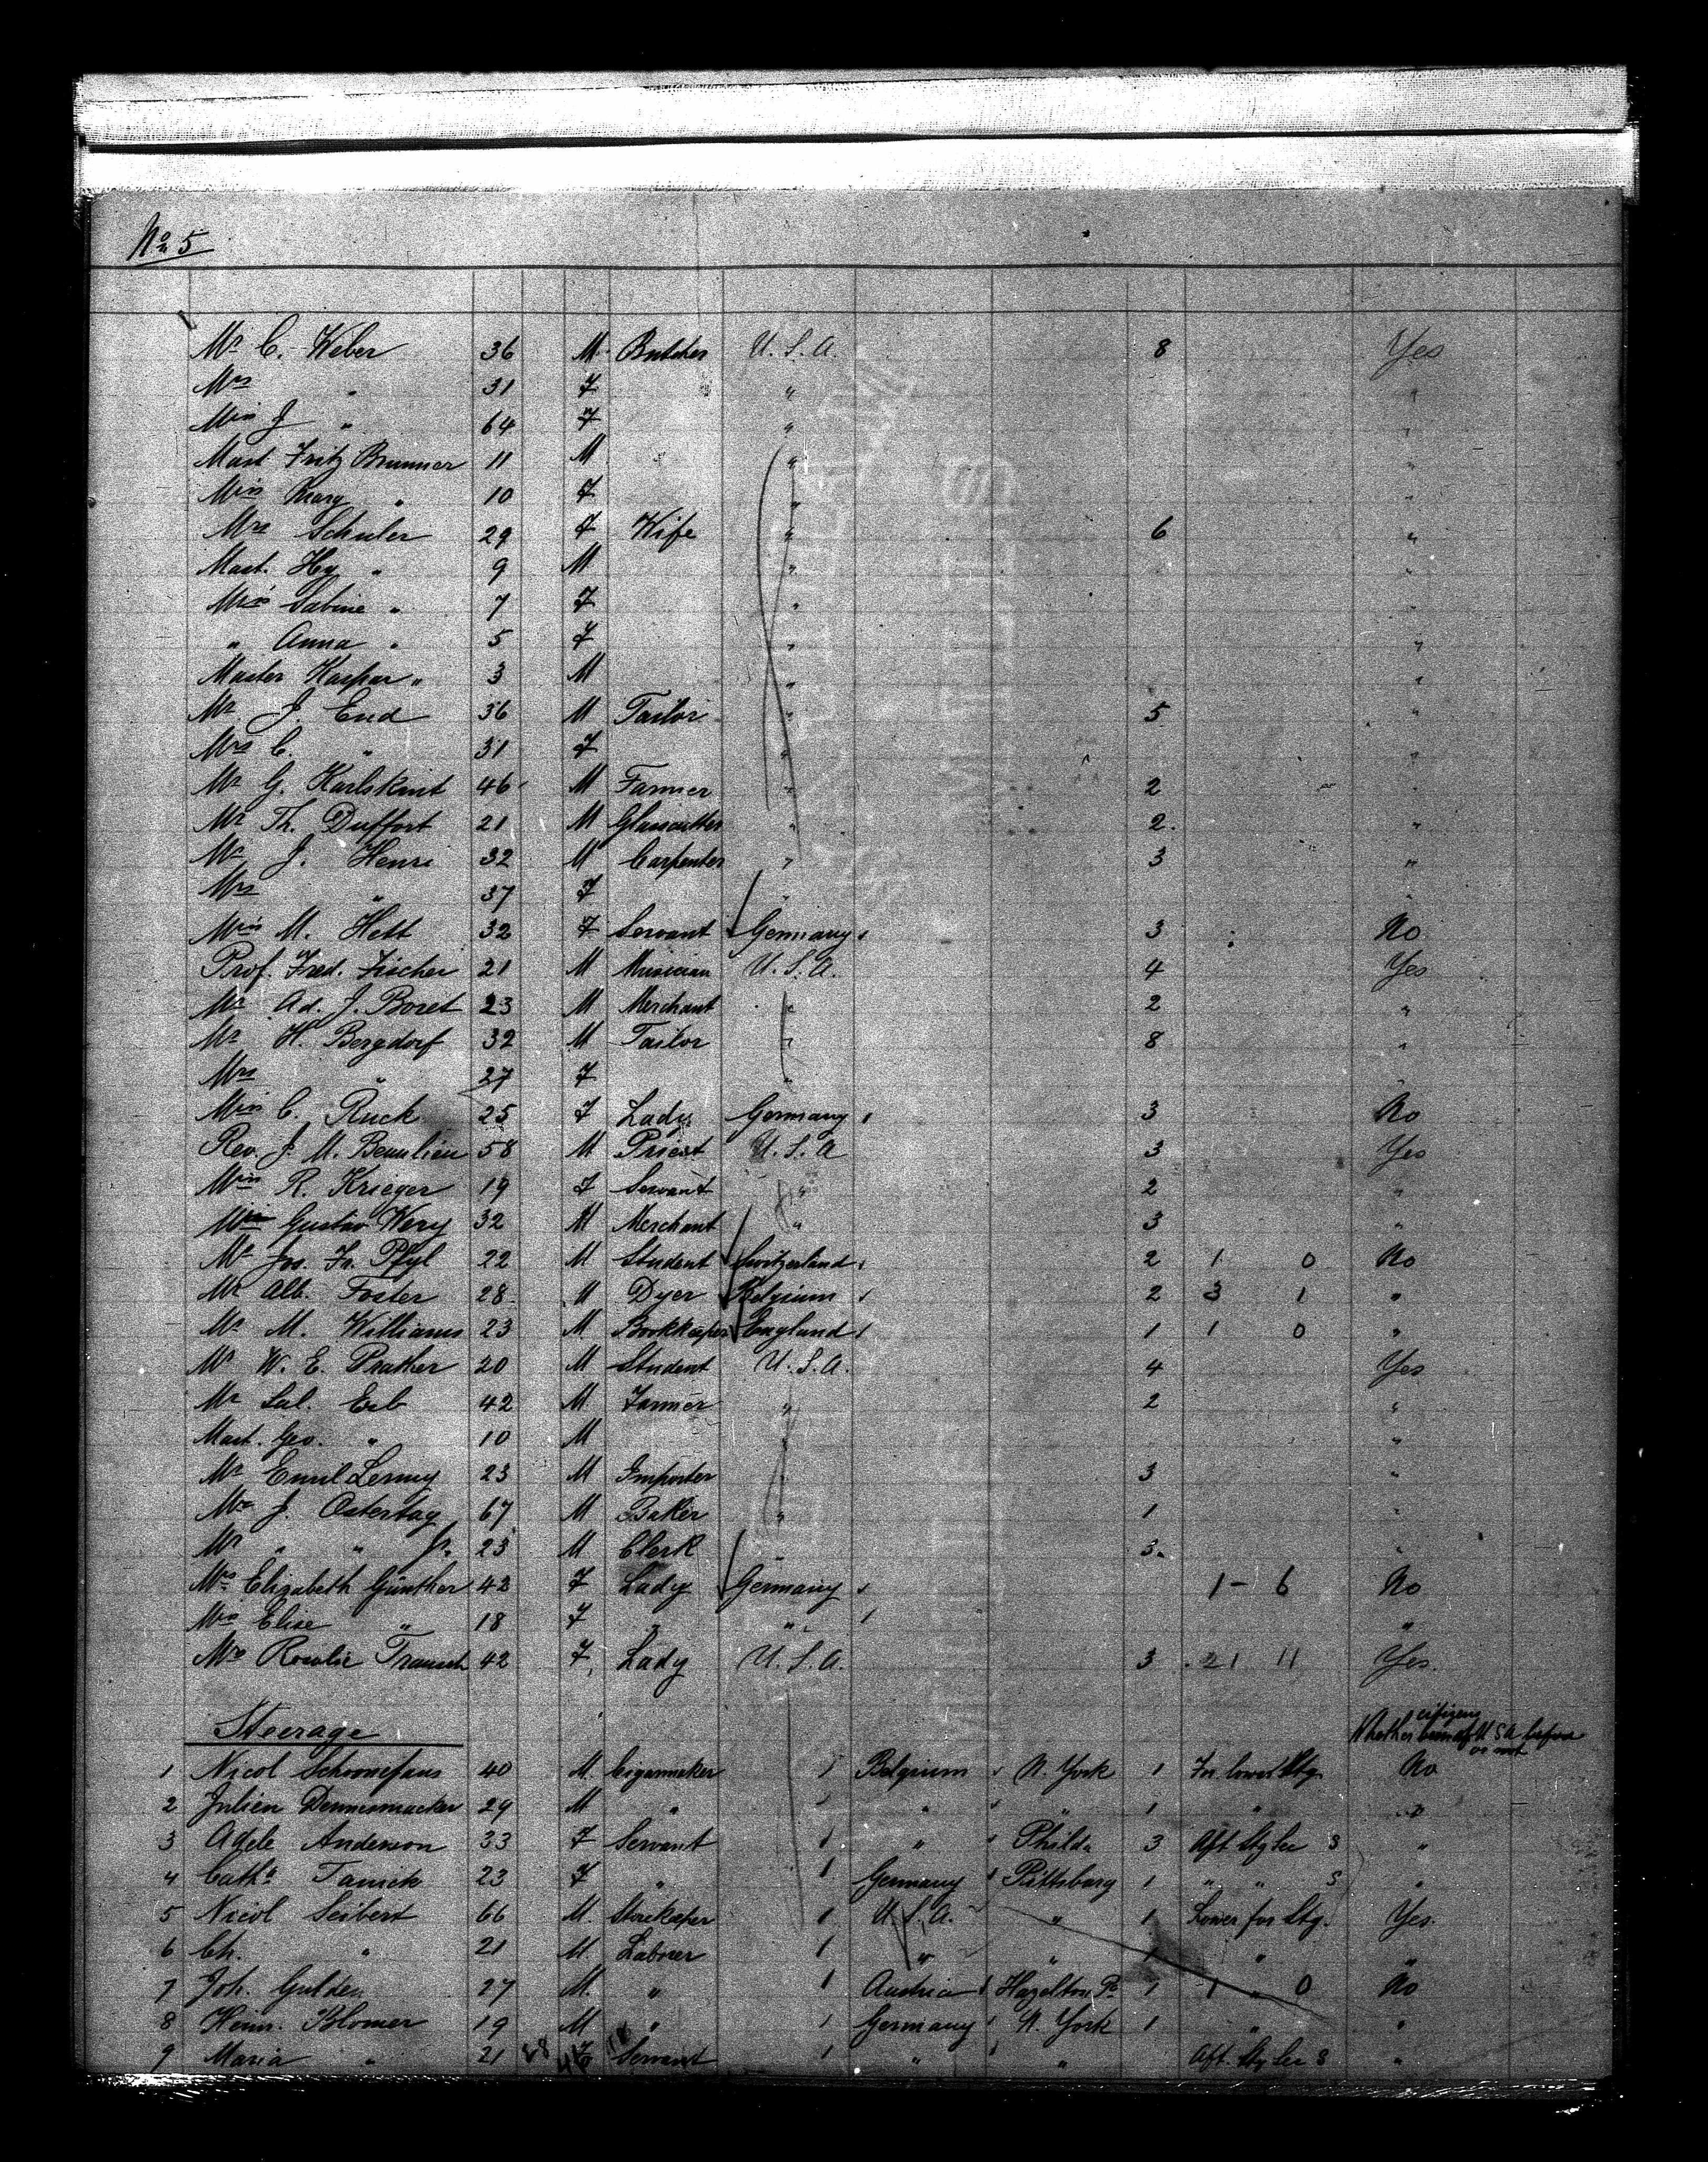 No 5
Mr C. Weber 36 M. Butcher U.S.A. 8 Yes
Mrs " 31 F " "
Miss J " 64 F " "
Mast Fritz Brunner 11 M " "
Miss Marg " 10 F " "
Mrs Schuler 29 F Wife " 6 "
Mast. Hy " 9 M " "
Miss Sabine " 7 F " "
" Anna " 5 F " "
Master Kaspar " 3 M " "
Mr J. End 36 M Tailor " 5 "
Mrs C. " 31 F " "
Mr G. Karlskint 46 M Farmer " 2 "
Mr Th. Duffort 21 M Glasscutter " 2. "
Mr J. Henri 32 M Carpenter " 3 "
Mrs " 37 F " "
Miss M. Hett 32 F Servant Germany 3 No
Prof. Fred. Fischer 21 M Musician U.S.A. 4 Yes
Mr Ad. J. Boret 23 M Merchant " 2 "
Mr H. Bergdorf 32 M Tailor " 8 "
Mrs " 27 F " "
Miss C. Ruck 25 F Lady Germany 3 No
Rev. J. M. Beaulieu 58 M Priest U.S.A 3 Yes
Miss R. Krieger 19 F Servant " 2 "
Gustav Wery 32 M Merchant " 3 "
Mr Jos. Fr. Pfyl 22 M Student Switzerland 2 1 0 No
Mr Alb. Foster 28 M Dyer Belgium 2 3 1 "
Mr M. Williams 23 M Bookkeeper England 1 1 0 "
Mr W. E. Prather 20 M Student U.S.A. 4 Yes
Mr Sal. Erb 42 M. Farmer " 2 "
Mast. Geo. " 10 M " "
Mr Emil Lermy 23 M Importer " 3 "
Mr J. Ostertag 67 M Baker " 1 "
Mr " " Jr. 23 M Clerk " 3 "
Mrs Elizabeth Günther 42 F Lady Germany 1 - 6 No
Miss Elise " 18 F " " "
Mrs Rosalie Trausch 42 F Lady U.S.A. 3 21 11 Yes.
Steerage
citizens
Whether of U S A before
or not
1 Nicol Schoonefaus 40 M. Cigarmaker 1 Belgium N. York 1 No
2 Julien Dennemacker 29 M " " " 1 " "
3 Adele Anderson 33 F Servant 1 " Philda 3 Aft Stg S "
4 Catha Tanick 23 F " 1 Germany Pittsburg 1 " " S "
5 Nicol Seibert 66 M. Storekeeper 1 U.S.A. " 1 Lower for Stg. Yes.
6 Ch. " 21 M. Laborer 1 " " 1 " "
7 Joh. Gulden 27 M. " 1 Austria Hazelton Pa 1 1 " 0 No
8 Heinr. Blomer 19 M " 1 Germany N. York 1 " "
9 Maria " 21 F Servant 1 " " Aft. Stg S "